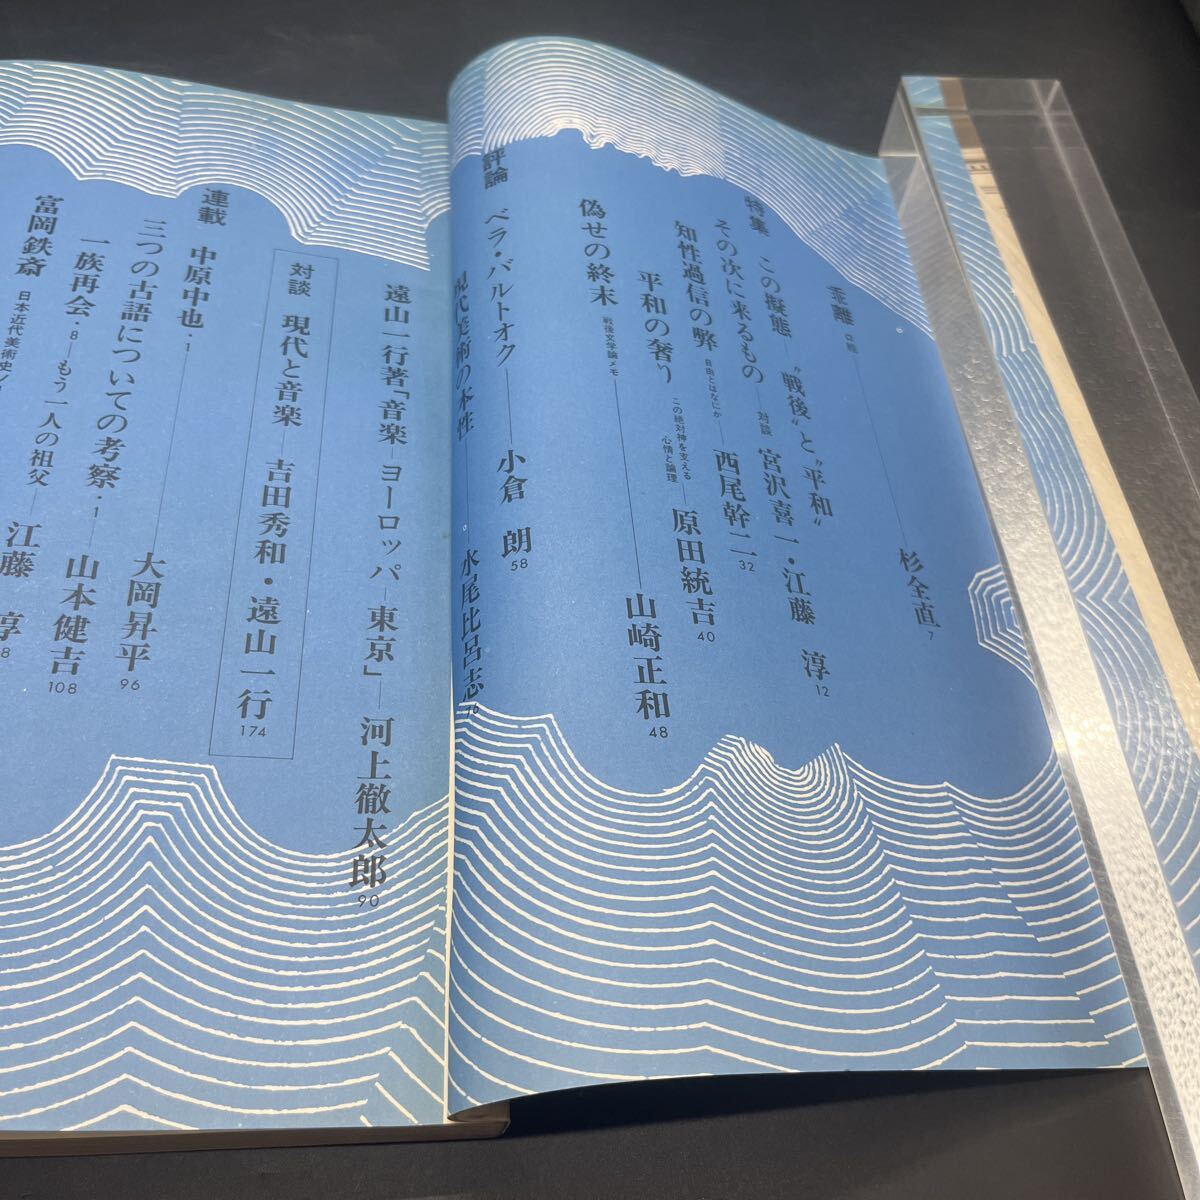 乖離 口絵 杉全直 7
特集 この擬態—〝戦後〟と〝平和〟
その次に来るもの—対談 宮沢喜一・江藤 淳 12
知性過信の弊 自由とはなにか—西尾幹二 32
平和の奢り この絶対神を支える心情と論理—原田統吉 40
偽せの終末 戦後文学論メモ—山崎正和 48
評論 ベラ・バルトオク—小倉 朗 58
現代美術の本性—水尾比呂志
遠山一行著「音楽—ヨーロッパ—東京」—河上徹太郎 90
対談 現代と音楽—吉田秀和・遠山一行 174
連載 中原中也・1—大岡昇平 96
三つの古語についての考察・1—山本健吉 108
一族再会・8—もう一人の祖父—江藤 淳
富岡鉄斎 日本近代美術史